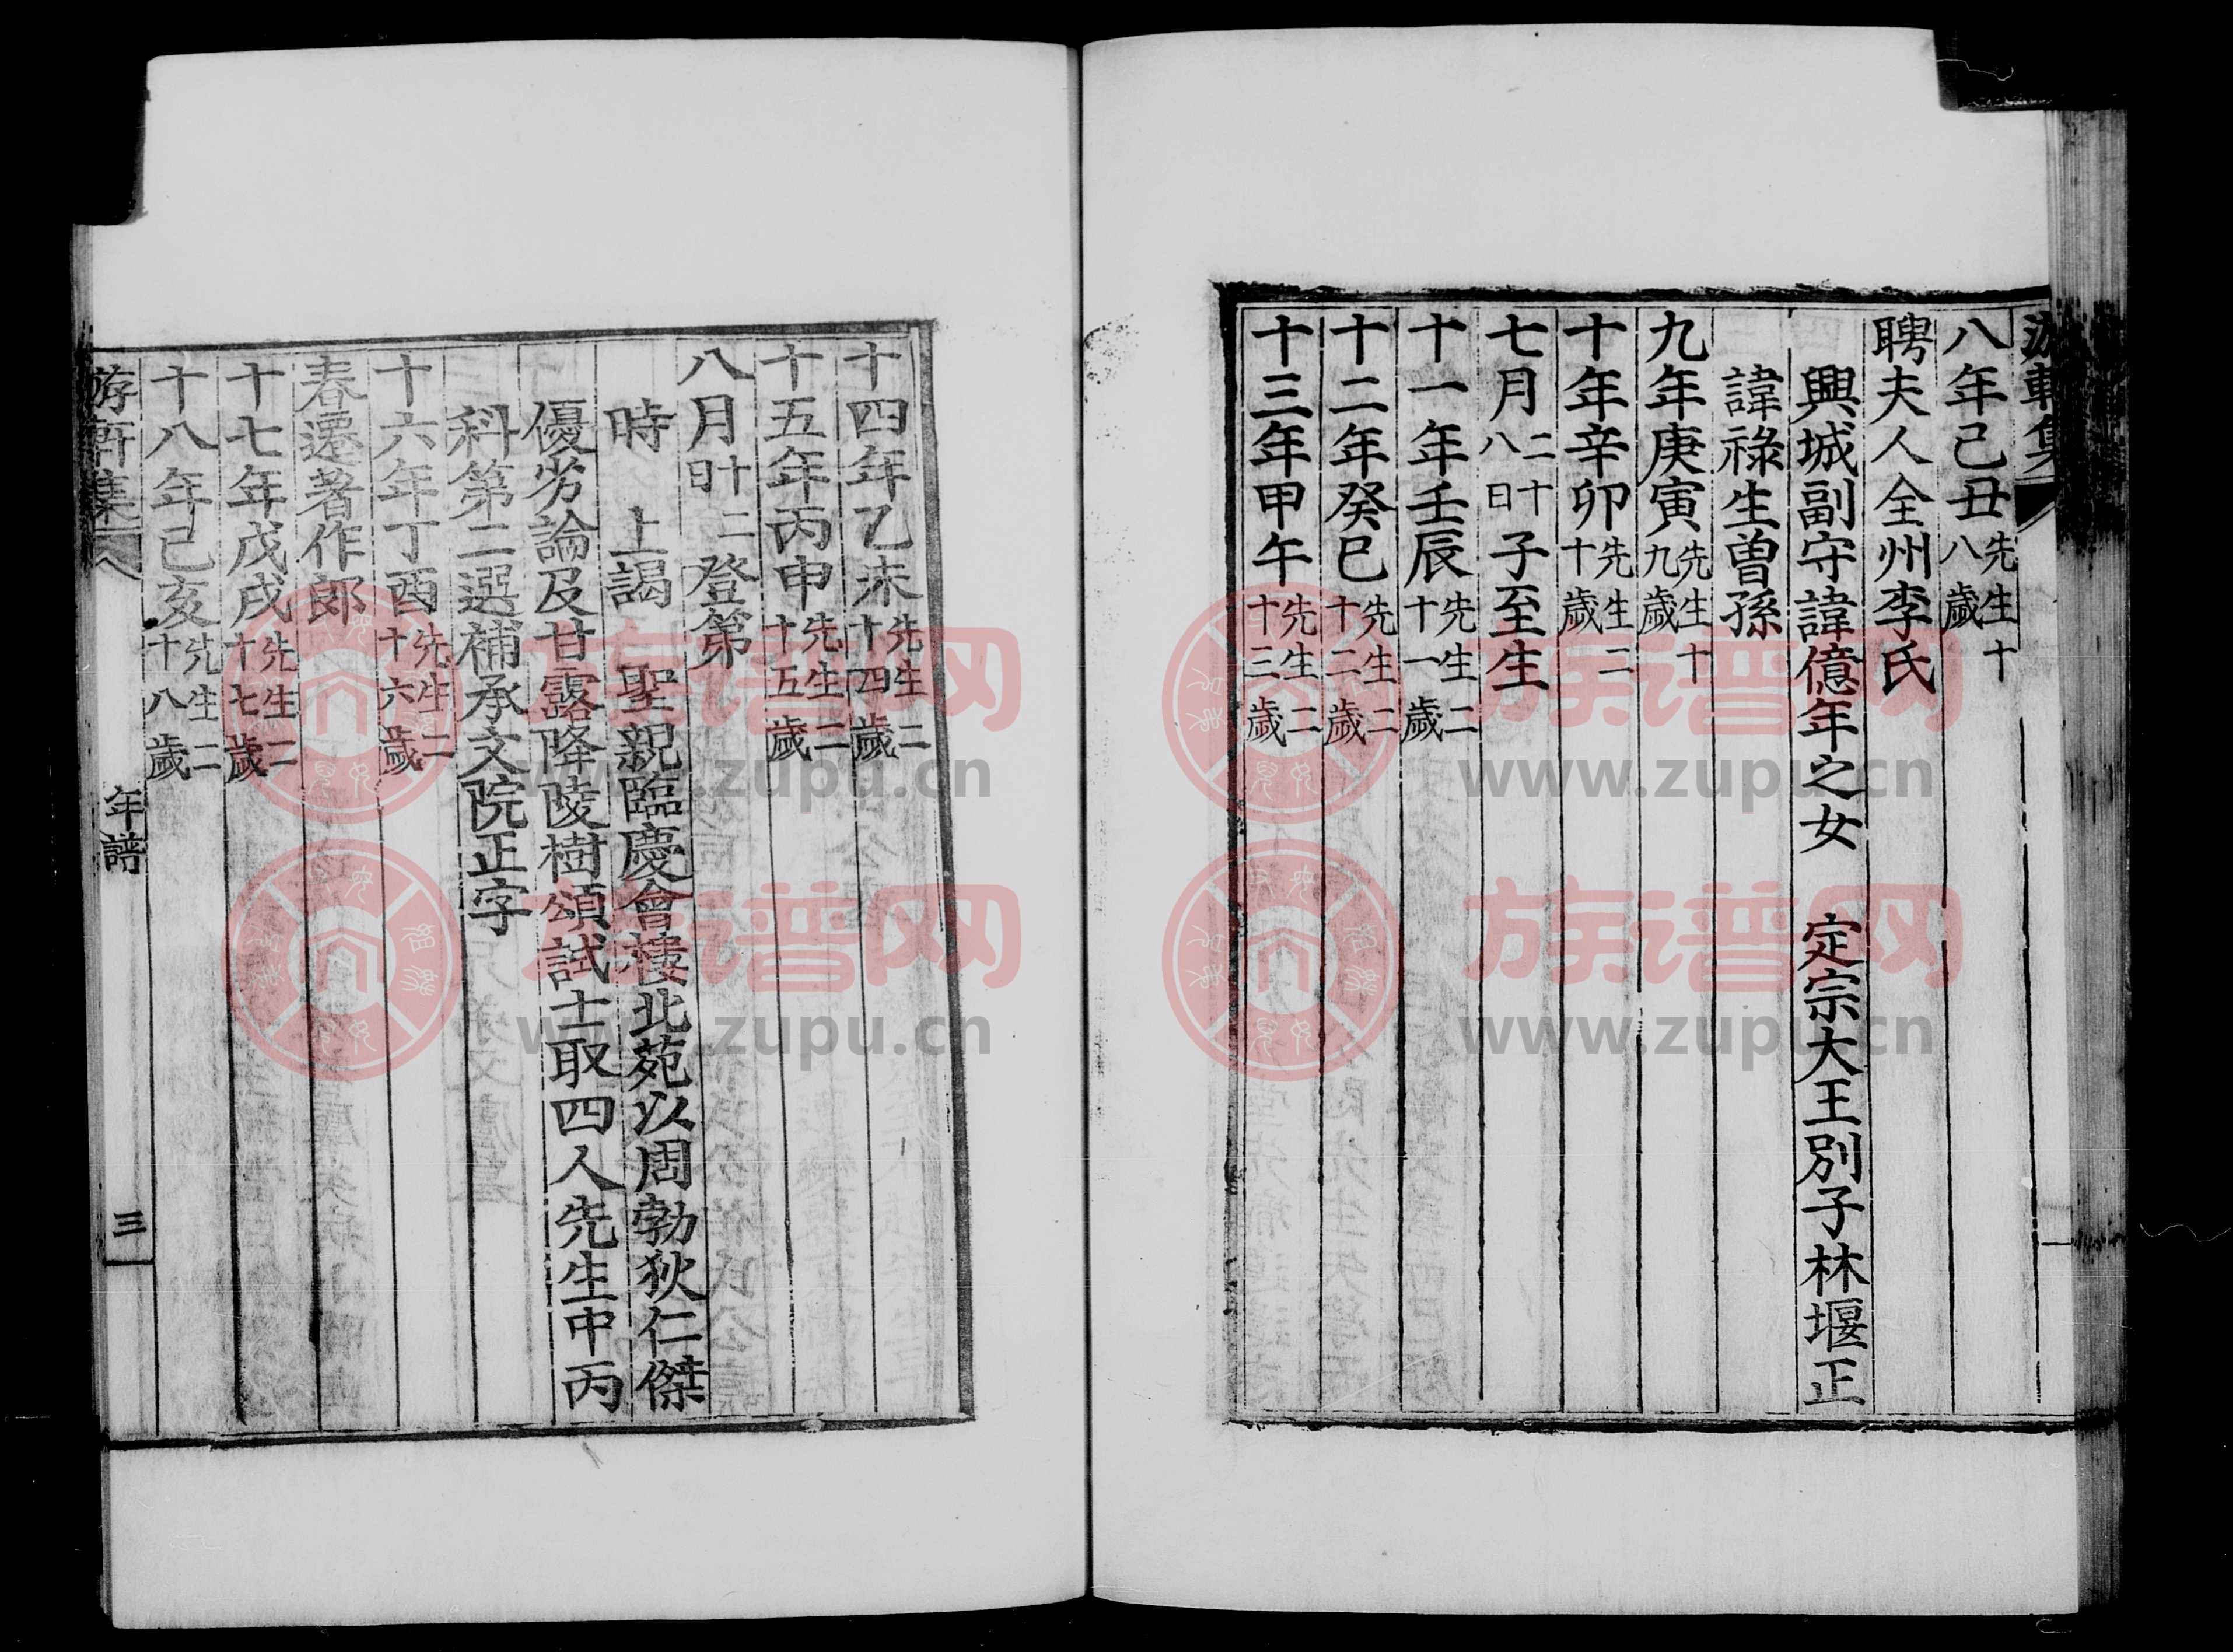 八年己丑先生十八歲
聘夫人全州李氏
興城副守諱億年之女　定宗大王別子林堰正
諱祿生曾孫
九年庚寅先生十九歲
十年辛卯先生二十歲
七月二十八日子至生
十一年壬辰先生二十一歲
十二年癸巳先生二十二歲
十三年甲午先生二十三歲
十四年乙未先生二十四歲
十五年丙申先生二十五歲
八月十二日登第
時　上謁　聖親臨慶會樓北苑以周勃狄仁傑
優劣論及甘露降陵樹頌試士取四人先生中丙
科第二選補承文院正字
十六年丁酉先生二十六歲
春遷著作郎
十七年戊戌先生二十七歲
十八年己亥先生二十八歲
游軒集　年譜　三
族谱网
www.zupu.cn
族谱网
www.zupu.cn
族谱网
www.zupu.cn
族谱网
www.zupu.cn